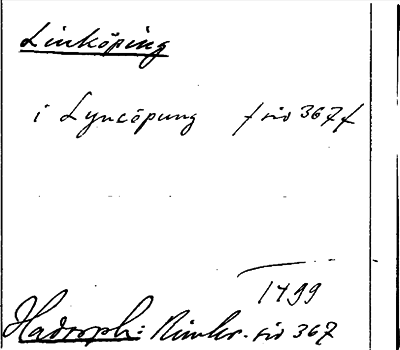 Linköping
i Lyncöpung f sid 367 f
1499
Hadorph: Rimkr. sid 367